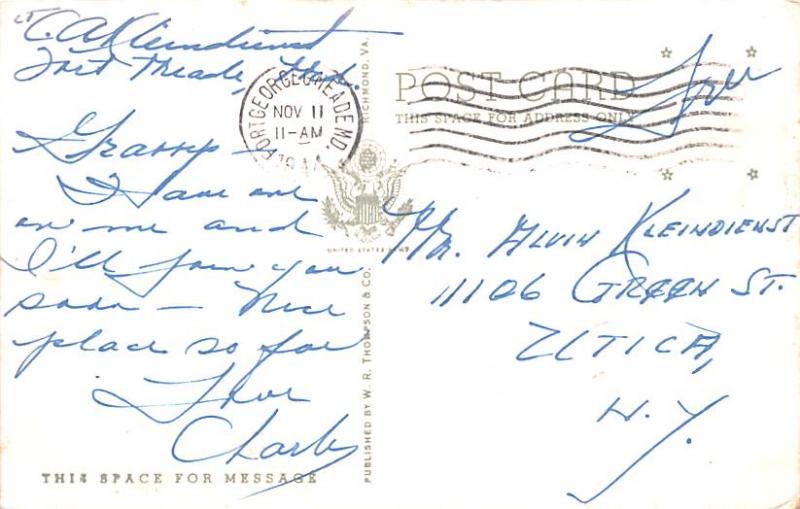 LT C. A. Kleindienst
Fort Meade, Md.
Have one
on me and
I'll join you
soon – Nice
place so far
Love
Charles
THIS SPACE FOR MESSAGE
FORT GEORGE G MEADE MD.
NOV 11
11-AM
1944
RICHMOND, VA.
PUBLISHED BY W. R. THOMPSON & CO.
UNITED STATES
POST CARD
THIS SPACE FOR ADDRESS ONLY
Free
Mr. Alvin Kleindienst
11106 Green St.
Utica,
N.Y.